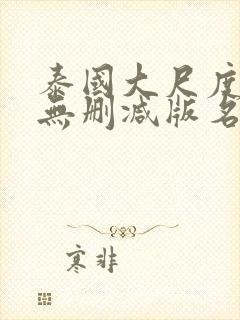 泰國大尺度
無刪減版名
寒非